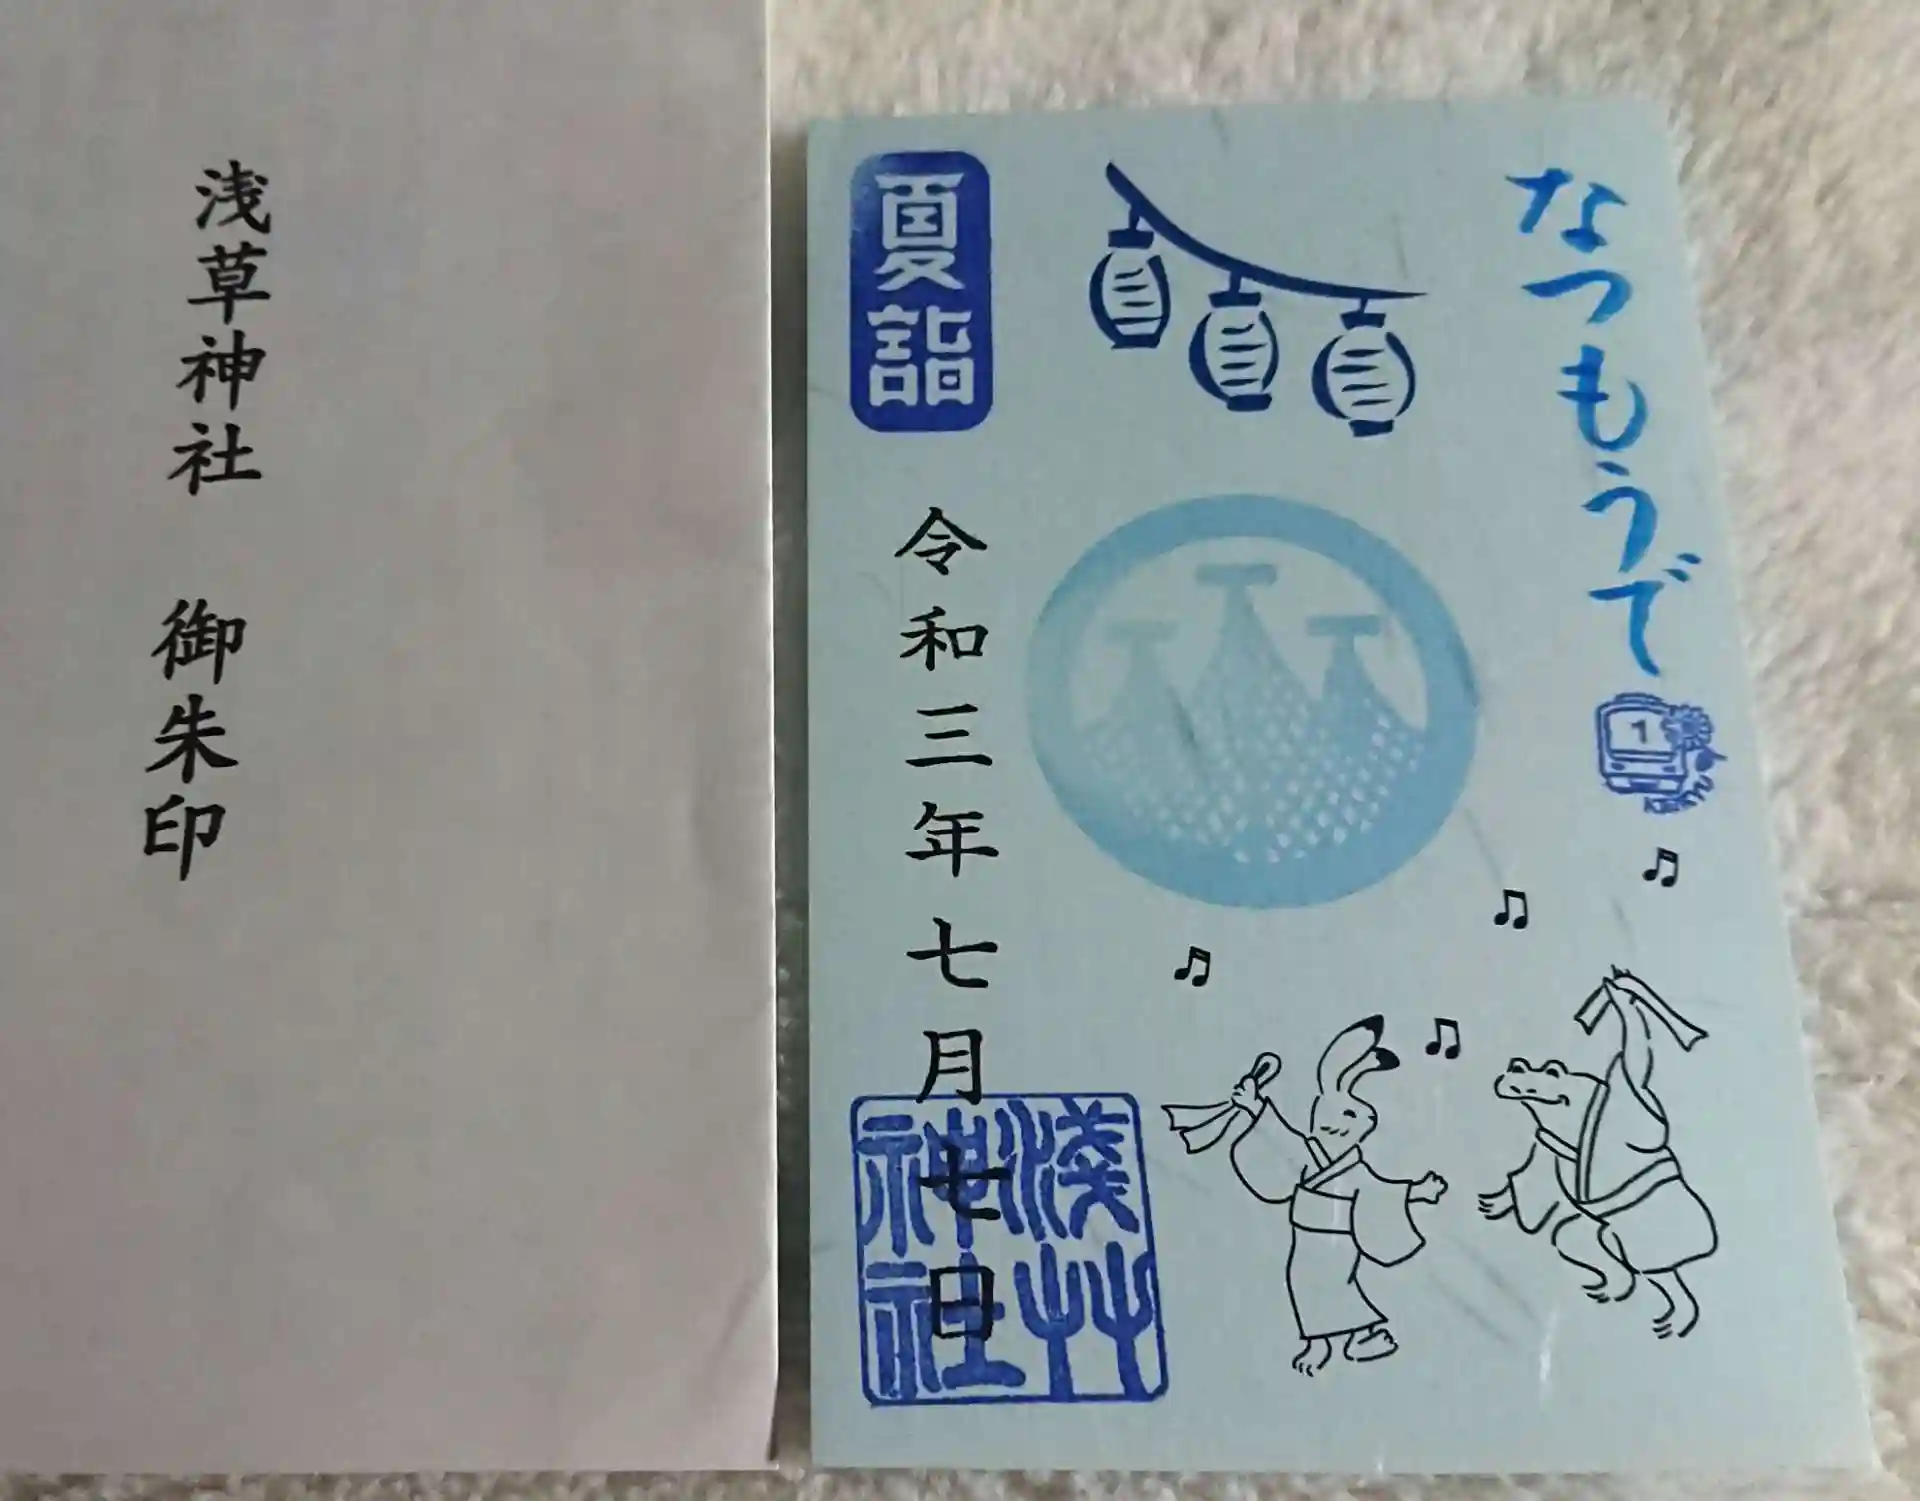 浅草神社 御朱印
なつもうで
1
夏詣
令和三年七月七日
淺艸
神社